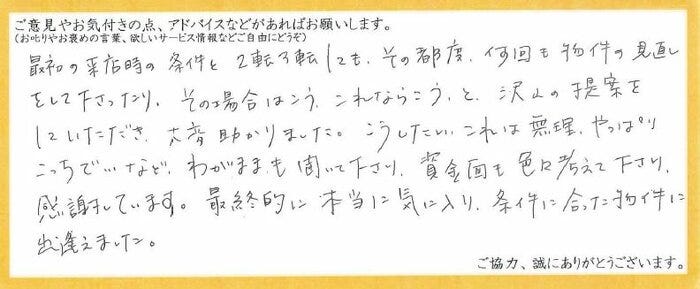 ご意見やお気付きの点、アドバイスなどがあればお願いします。
(お叱りやお褒めの言葉、欲しいサービス情報などご自由にどうぞ)
最初の来店時の条件と2転3転しても、その都度、何回も物件の見直し
をして下さったり、その場合はこう、これならこう、と、沢山の提案を
していただき、大変助かりました。こうしたい、これは無理、やっぱり
こっちでいいなど、わがままも聞いて下さり、資金面も色々考えて下さり、
感謝しています。最終的に本当に気に入り、条件に合った物件に
出逢えました。
ご協力、誠にありがとうございます。